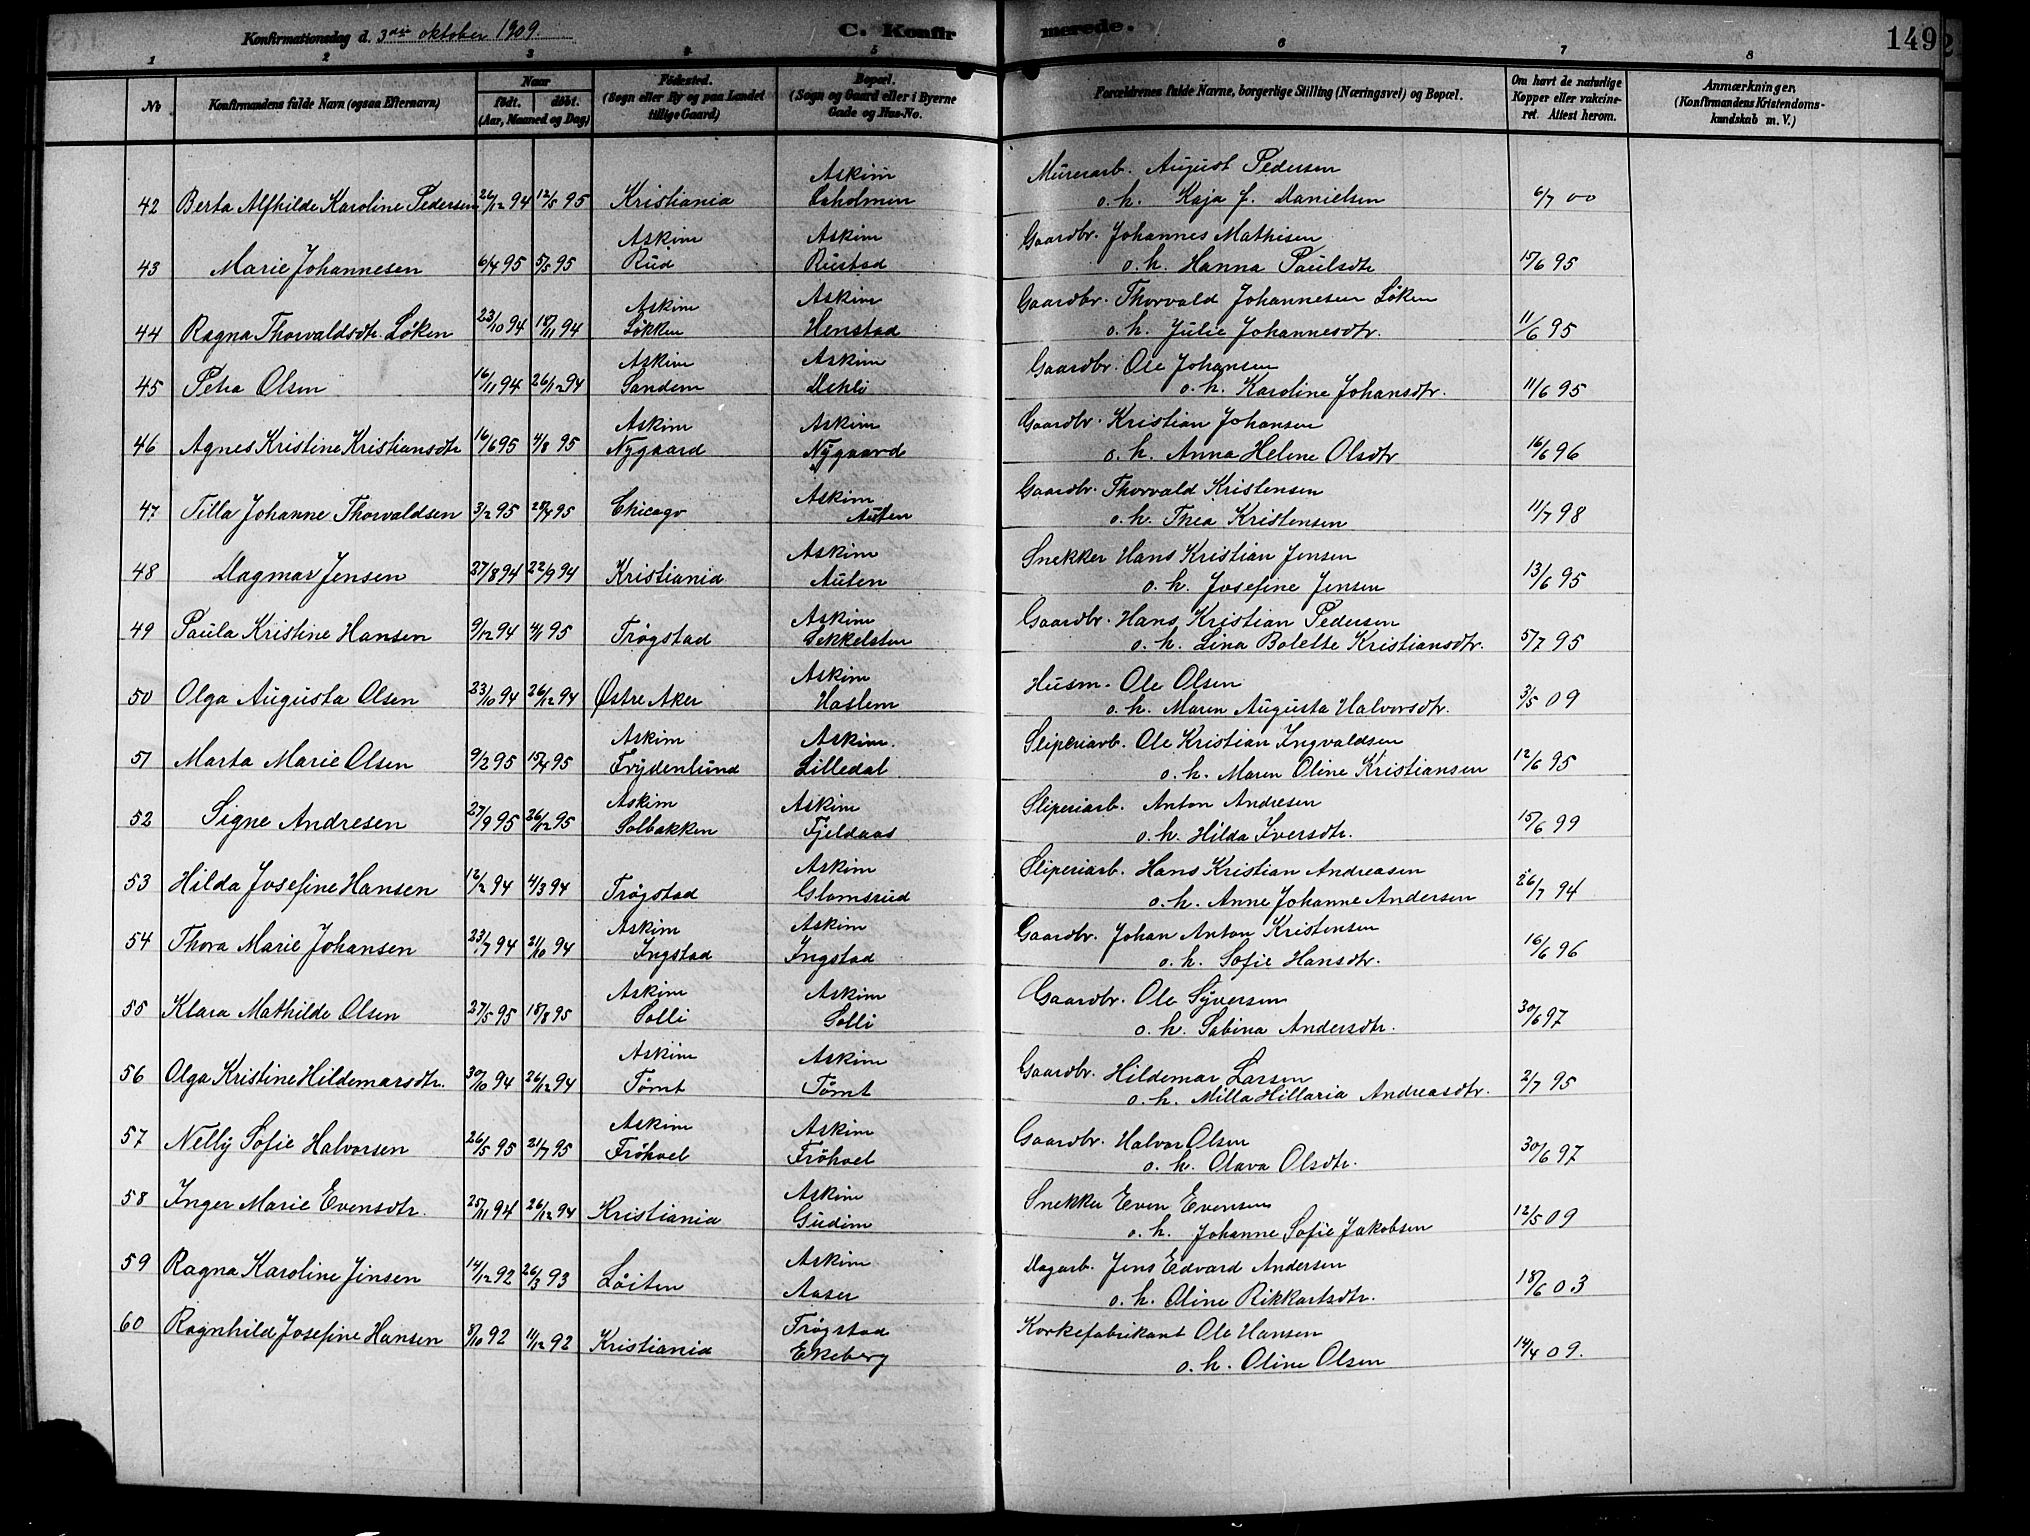 Konfirmationsdag d. 3die oktober 1909. C. Konfirmerede. 149
1 2 3 4 5 6 7 8
No Konfirmandens fulde Navn (ogsaa Efternavn) Naar født. døbt. (Aar, Maaned og Dag) Fødested. (Sogn eller By og paa Landet tillige Gaard) Bopæl. (Sogn og Gaard eller i Byerne Gade og Hus-No. Forældrenes fulde Navne, borgerlige Stilling (Næringsvei) og Bopæl. Om havt de naturlige Kopper eller vakcineret. Attest herom. Anmærkninger, (Konfirmandens Kristendomskundskab m. V.)
Askim Murerarb. August Pedersen
42 Berta Alfhilde Karoline Pedersen 26/12 94 12/5 95 Kristiania o. h. Kaja f. Danielsen 6/7 00
Askim Askim Gaardbr. Johannes Mathisen
43 Marie Johannesen 6/4 95 5/5 95 Rud Rustad o. h. Hanna Paulsdtr 15/6 95
Askim Askim Gaardbr. Thorvald Johannesen Løken
44 Ragna Thorvaldsdtr. Løken 23/10 94 18/11 94 Løkken Henstad o. h. Julie Johannesdtr. 11/6 95
Askim Askim Gaardbr. Ole Johansen
45 Petra Olsen 16/11 94 26/12 94 Sandem Dehli o. h. Karoline Johansdtr. 11/6 95
Askim Askim Gaardbr. Kristian Johansen
46 Agnes Kristine Kristiansdtr 16/6 95 4/8 95 Nygaard Nygaard o. h. Anna Helene Olsdtr 16/6 96
Askim Gaardbr. Thorvald Kristensen
47. Tilla Johanne Thorvaldsen 3/2 95 28/4 95 Chicago Auten o. h. Thea Kristensen 11/7 98
Askim Snekker Hans Kristian Jensen
48 Dagmar Jensen 27/8 94 22/9 94 Kristiania Auten o. h. Josefine Jensen 13/6 95
Askim Gaardbr. Hans Kristian Pedersen
49 Paula Kristine Hansen 9/12 94 4/1 95 Trøgstad Sekkelsten o. h. Lina Bolette Kristiansdtr. 5/7 95
Askim Husm. Ole Olsen
50 Olga Augusta Olsen 23/10 94 26/12 94 Østre Aker Haslem o. h. Maren Augusta Halvorsdtr. 3/5 09
Askim Askim. Sliperiarb. Ole Kristian Ingvaldsen
51 Marta Marie Olsen 9/2 95 15/4 95 Frydenlund Lilledal o. h. Maren Oline Kristiansen 12/6 95
Askim Askim Sliperiarb. Anton Andresen
52 Signe Andresen 27/9 95 26/12 95 Solbakken Fjeldaas o. h. Hilda Iversdtr. 15/6 99
Askim Sliperiarb. Hans Kristian Andreasen
53 Hilda Josefine Hansen 12/2 94 4/3 94 Trøgstad Glomsrud o. h. Anne Johanne Andersen 26/7 94
Askim Askim Gaardbr. Johan Anton Kristensen
54 Thora Marie Johansen 23/7 94 21/10 94 Ingstad Ingstad o. h. Sofie Hansdtr. 16/6 96
Askim Askim Gaardbr. Ole Syversen
55 Klara Mathilde Olsen 27/5 95 18/8 95 Solli Solli o. h. Sabina Andersdtr. 30/6 97
Askim Askim Gaardbr. Hildemar Larsen
56 Olga Kristine Hildemarsdtr. 30/10 94 26/12 94 Tømt Tømt o. h. Milla Hillaria Andreasdtr. 2/7 95
Askim Askim Gaardbr. Halvor Olsen
57 Nelly Sofie Halvorsen 26/5 95 21/7 95 Frøhoel Frøhoel o. h. Olava Olsdtr. 30/6 97
Askim Snekker Even Evensen
58 Inger Marie Evensdtr. 25/11 94 26/12 94 Kristiania Gudim o. h. Johanne Sofie Jakobsen 12/5 09
Askim Dagarb. Jens Edvard Andersen
59 Ragna Karoline Jensen 14/12 92 26/3 93 Løiten Aaser o. h. Oline Rikkartsdtr. 18/6 03
Trøgstad Korkefabrikant Ole Hansen
60 Ragnhild Josefine Hansen 8/10 92 11/12 92 Kristiania Ekeberg o. h. Oline Olsen 14/4 09.